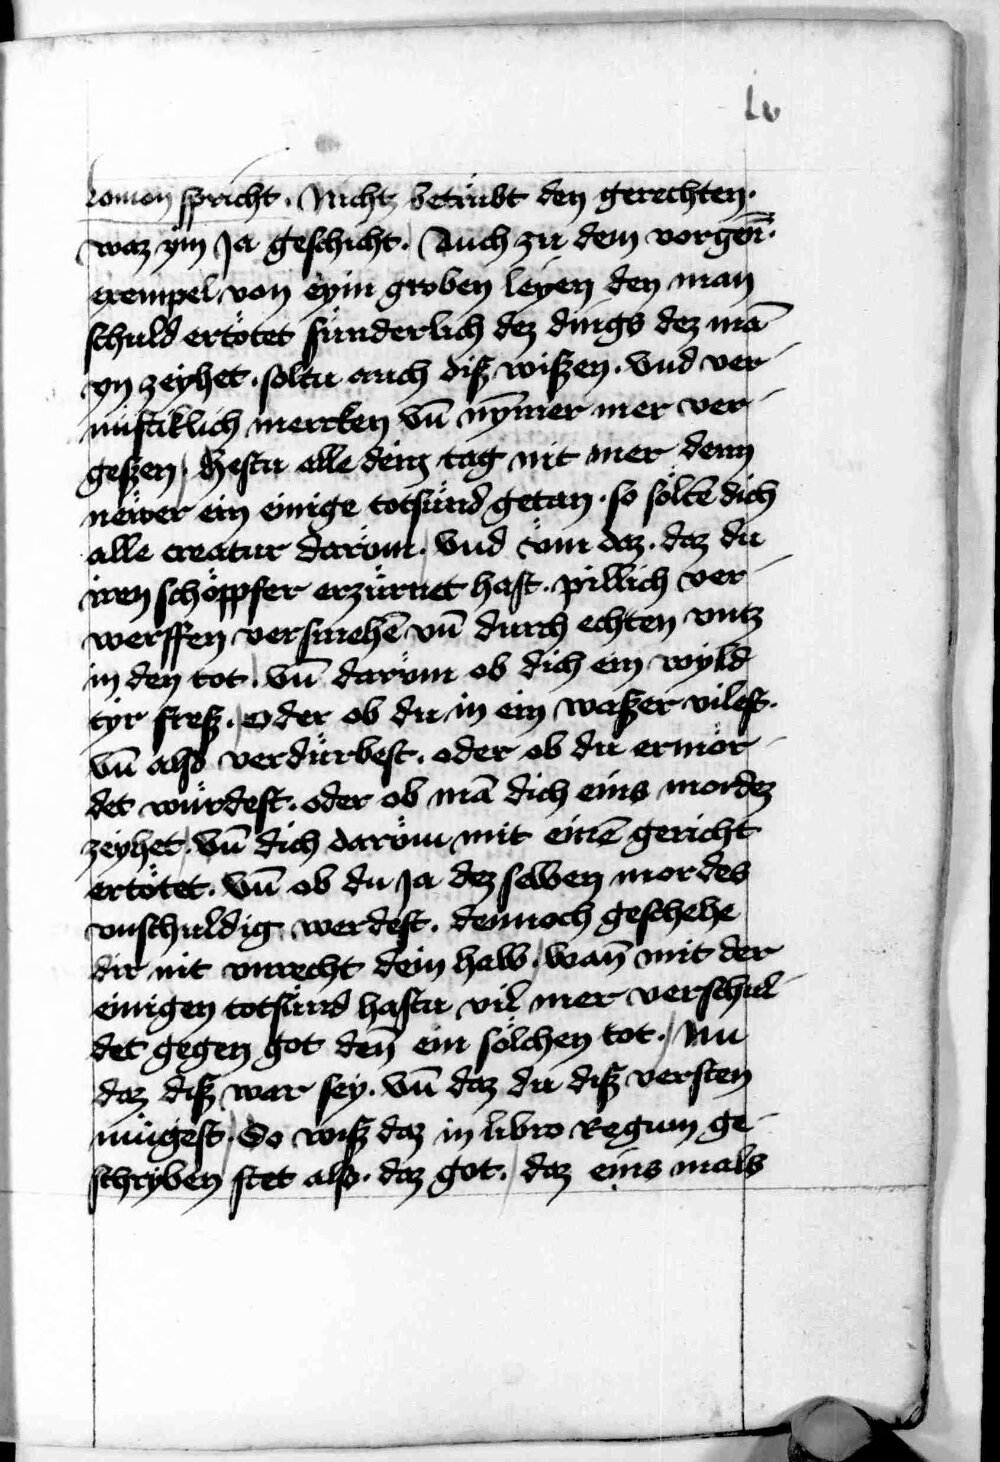 lv
lomon spricht. Nichtz betrübt den gerechten.
waz ym Ja geschicht. Auch zu dem vorgen̄.
exempel von eym groben leyen den man
schuld ertötet sünderlich dez dings dez mā
yn zeyhet. soltu auch diß wißen. vnd ver
nuftiklich mercken vn̄ nȳmer mer ver
geßen. Hestu alle dein tag nit mer denn
newer ein einige totsünd getan. so sölte dich
alle creatur daröm. vnd vm daz. daz du
iren schöppfer erzürnet hast. pillich ver
werffen versmehē vn̄ durch echten vntz
in den tot. vn̄ daröm ob dich ein wyld
tyr freß. oder ob du in ein waßer vilest.
vn̄ also verdürbest. oder ob du ermör
det würdest. oder ob mā dich eins mordez
zeyhet. vn̄ dich daröm mit einē gericht
ertötet. vn̄ ob du Ja dez selben mordes
vnschuldig werdest. dennoch geschehe
dir nit vnrecht dein halb. wan̄ mit der
einigen totsünd hastu vil mer verschul
det gegen got den̄ ein sölchen tot. Nu
daz diß war sey. vn̄ daz du diß versten
mügest. So wiß daz in libro Regum ge
schryben stet also. daz got. daz eins mals